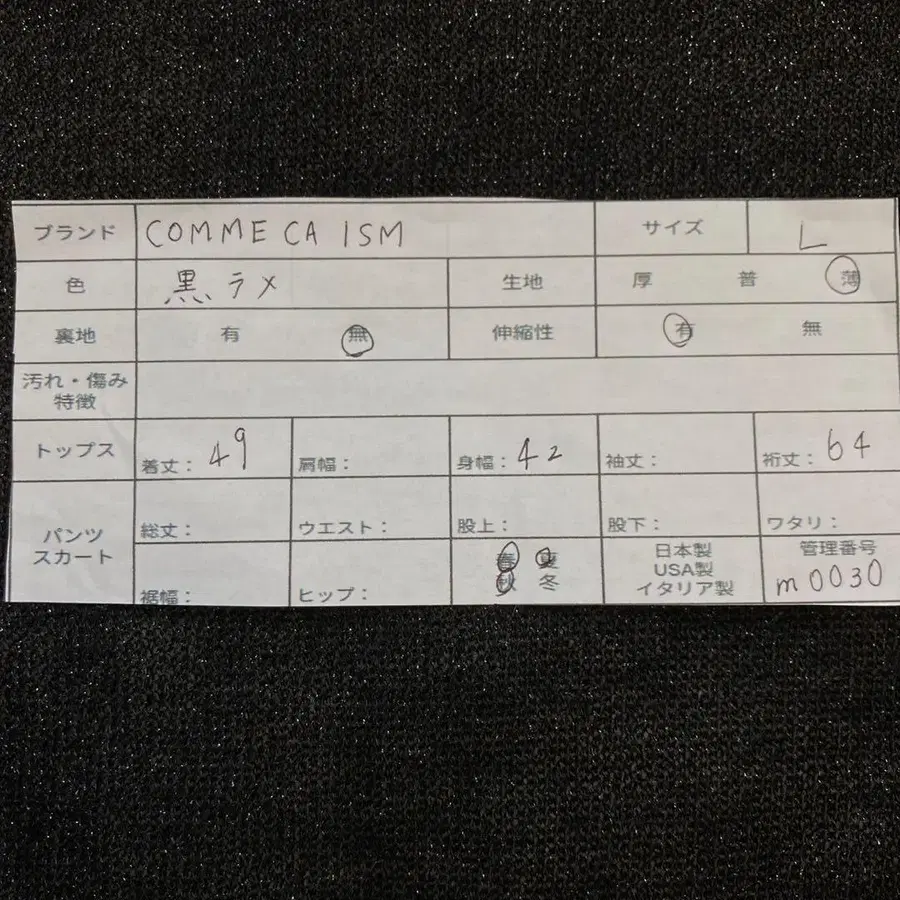 ブランド COMME CA ISM サイズ L
色 黒ラメ 生地 厚 普 薄
裏地 有 無 伸縮性 有 無
汚れ・傷み
特徴
トップス 着丈: 49 肩幅: 身幅: 42 袖丈: 裄丈: 64
パンツ
スカート
総丈: ウエスト: 股上: 股下: ワタリ:
裾幅: ヒップ:
春 夏
秋 冬
日本製
USA製
イタリア製
管理番号
m0030